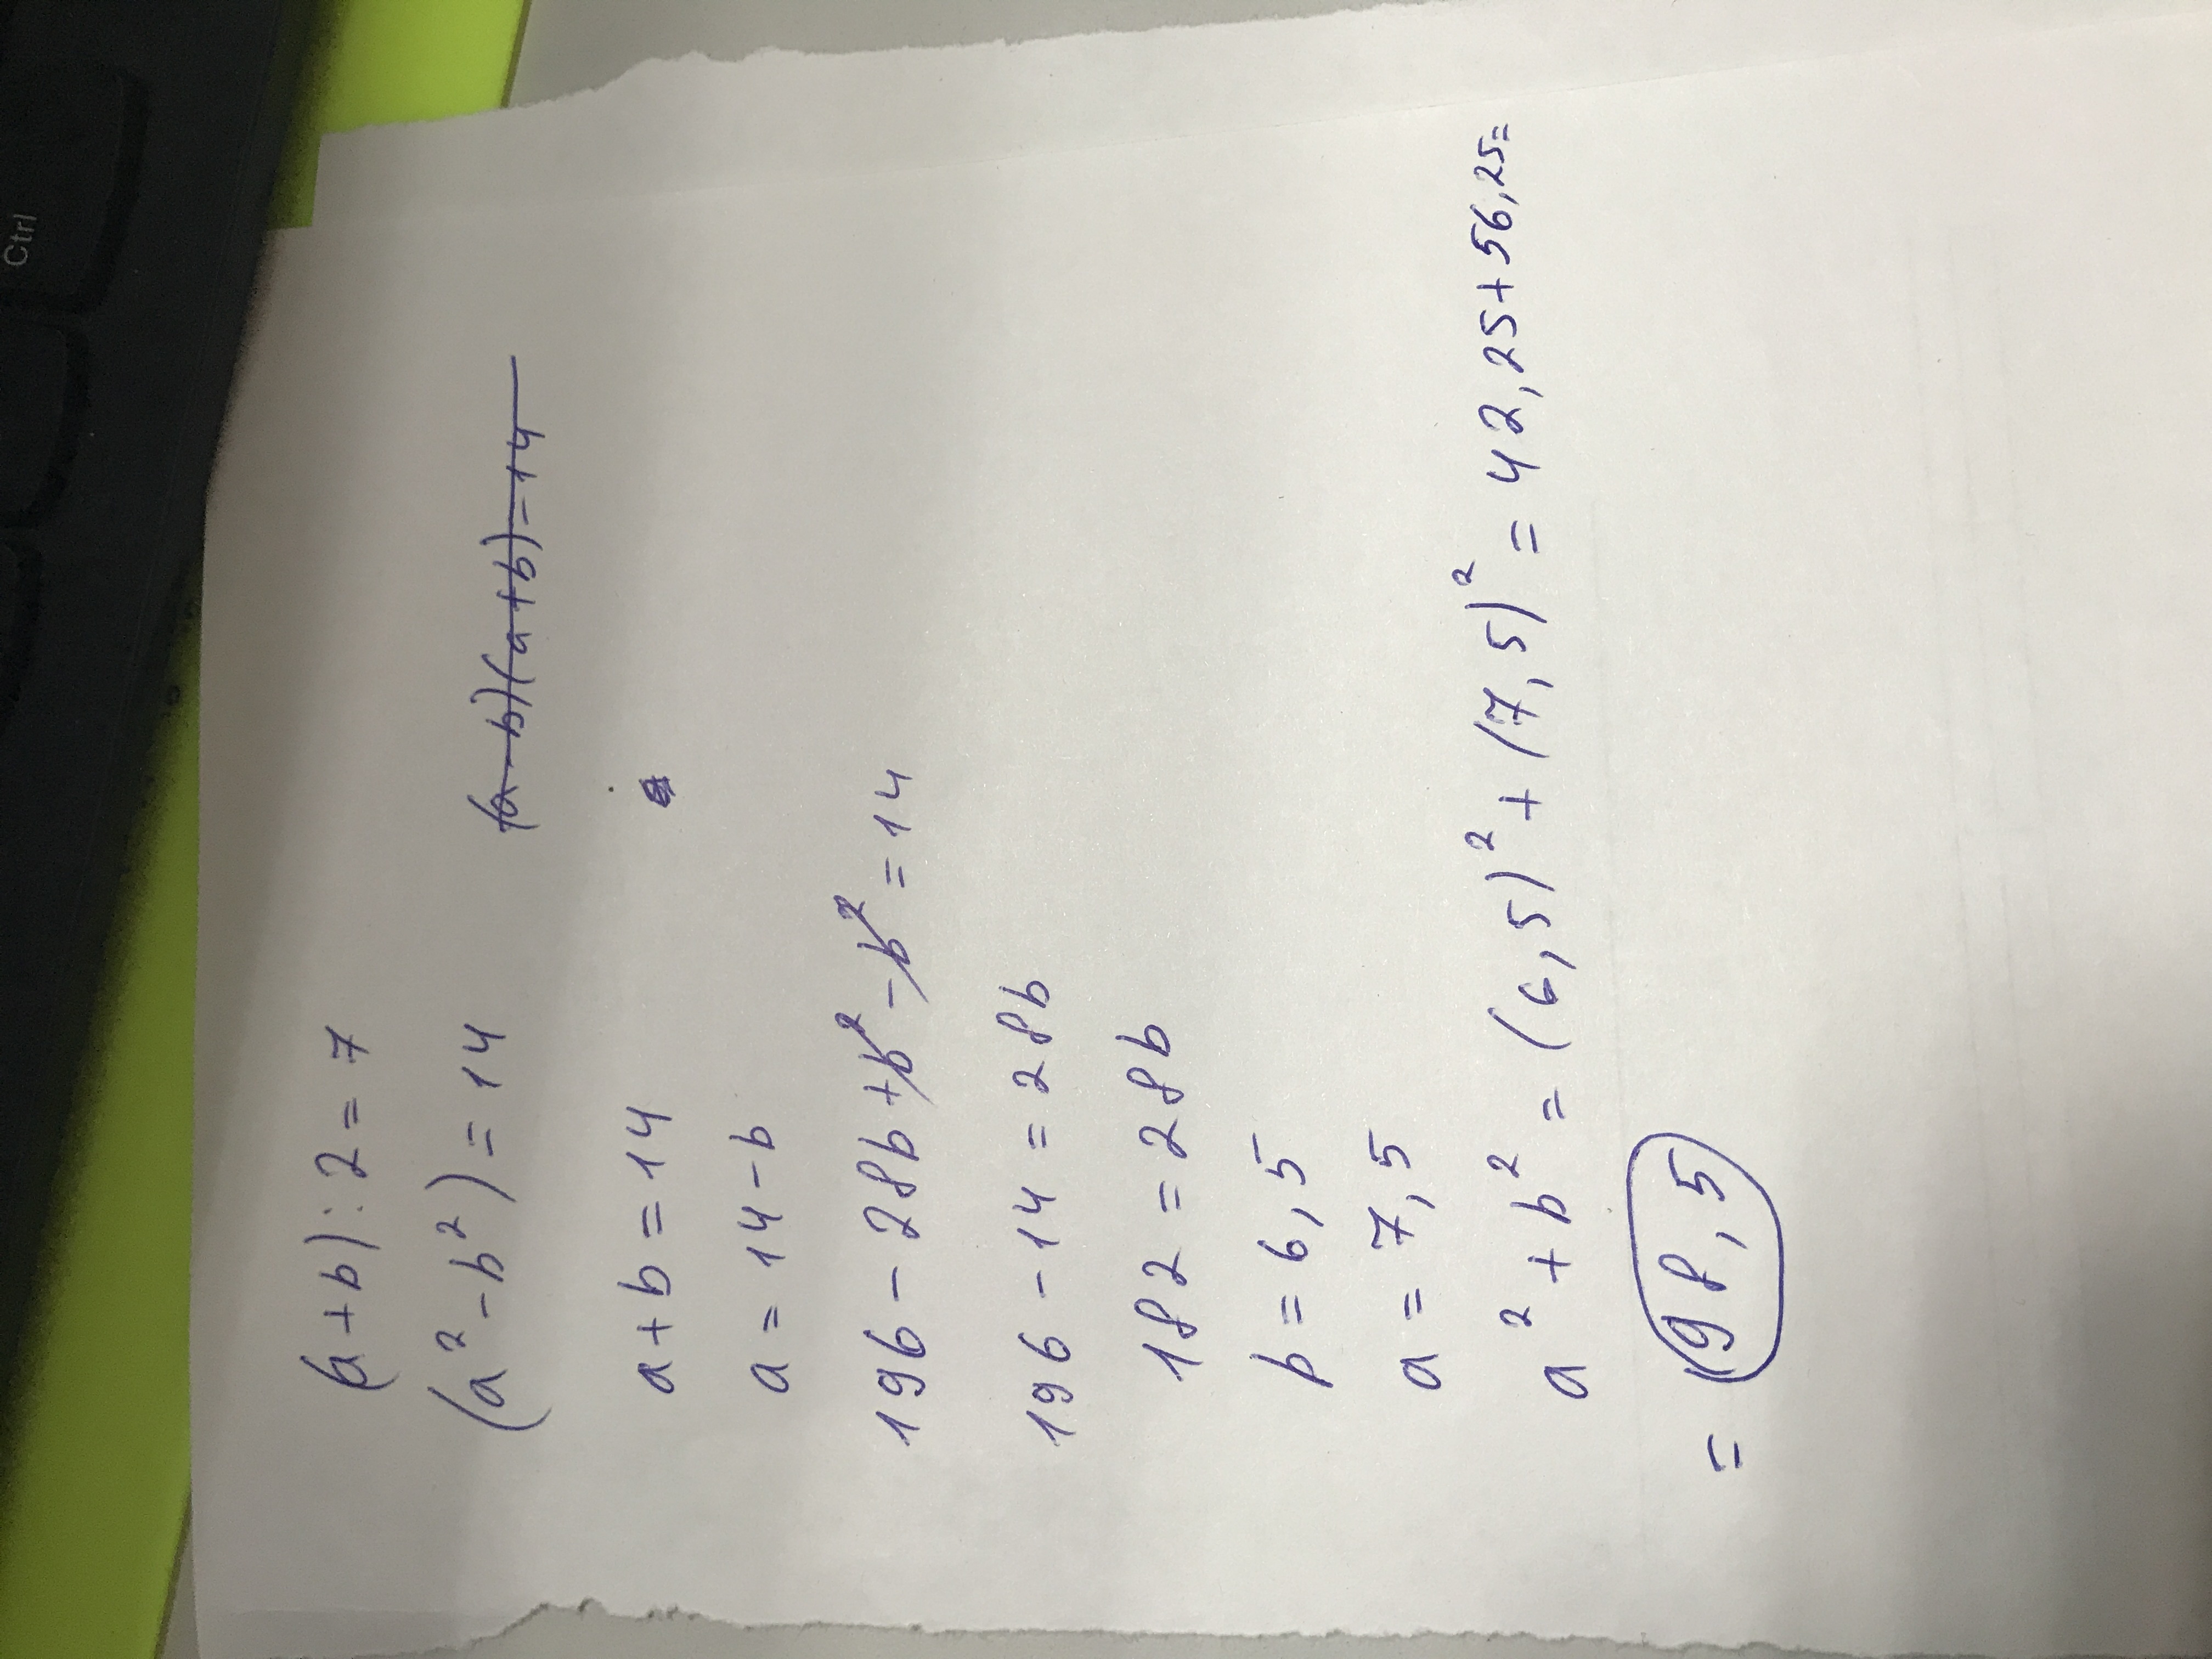 Ctrl
(a+b):2=7
(a²-b²)=14 (a-b)(a+b)=14
a+b=14
a=14-b
196-28b+b²-b²=14
196-14=28b
182=28b
b=6,5
a=7,5
a²+b²=(6,5)²+(7,5)²=42,25+56,25=
=98,5